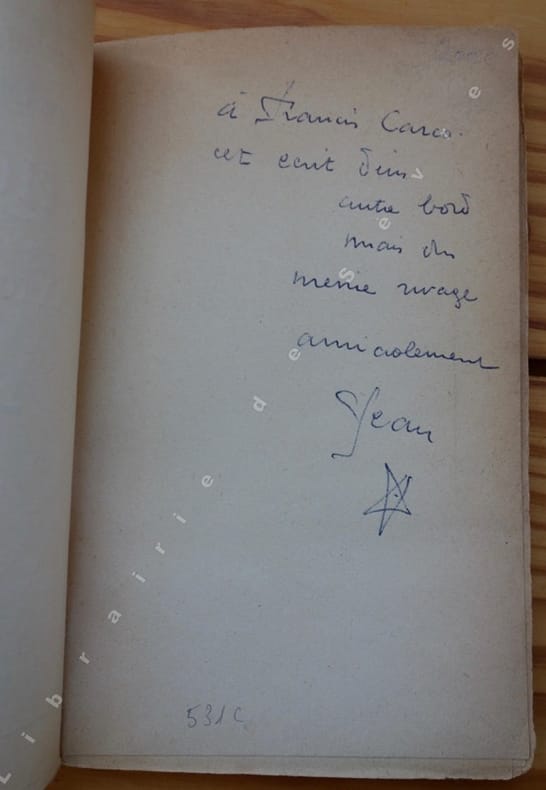 à Francis Carco.
cet écrit d'un
autre bord
mais du
même rivage
amicalement
Jean
531C
Librairie de